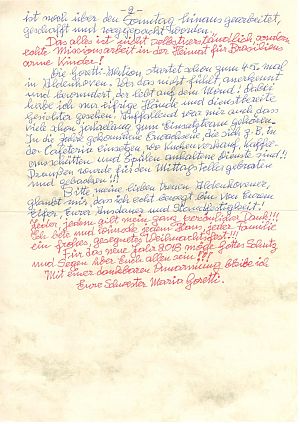 - 2 -
ist noch über den Sonntag hinaus gearbeitet,
geschafft und weggepackt worden.
Das alles ist nicht selbstverständlich sondern
echte Missionsarbeit in der Heimat für Brasiliens
arme Kinder!
Die Goretti-Aktion startet schon zum 45. mal
in Aldenhoven. Wer das nicht fühlt, anerkennt
und bewundert, der lebt auf dem Mond! Dabei
habe ich nur eifrige Hände und dienstbereite
Gesichter gesehen. Auffallend war mir auch dass
viele schon jahrelang zum Einsatzteam gehören.
In die Jahre gekommene Erwachsene die sich z.B. in
der Cafeteria einsetzen wo Kuchenverkauf, Kaffee-
ausschütten und Spülen anhaltende Dienste sind!!
Draußen wurde für den Mittags-Teller gebraten
und gebacken!!
Bitte meine lieben treuen Aldenhovener,
glaubt mir dass ich echt bewegt bin von Eurem
Eifer, Eurer Ausdauer und Standfestigkeit!
Jeder, jedem gilt mein ganz persönlicher Dank!!!
Ich bete und wünsche jedem Haus, jeder Familie
ein frohes, gesegnetes Weihnachtsfest!!!
Für das neue Jahr 2018 möge Gottes Schutz
und Segen über Euch allen sein!!!
Mit einer dankbaren Umarmung bleibe ich
Eure Schwester Maria Goretti.